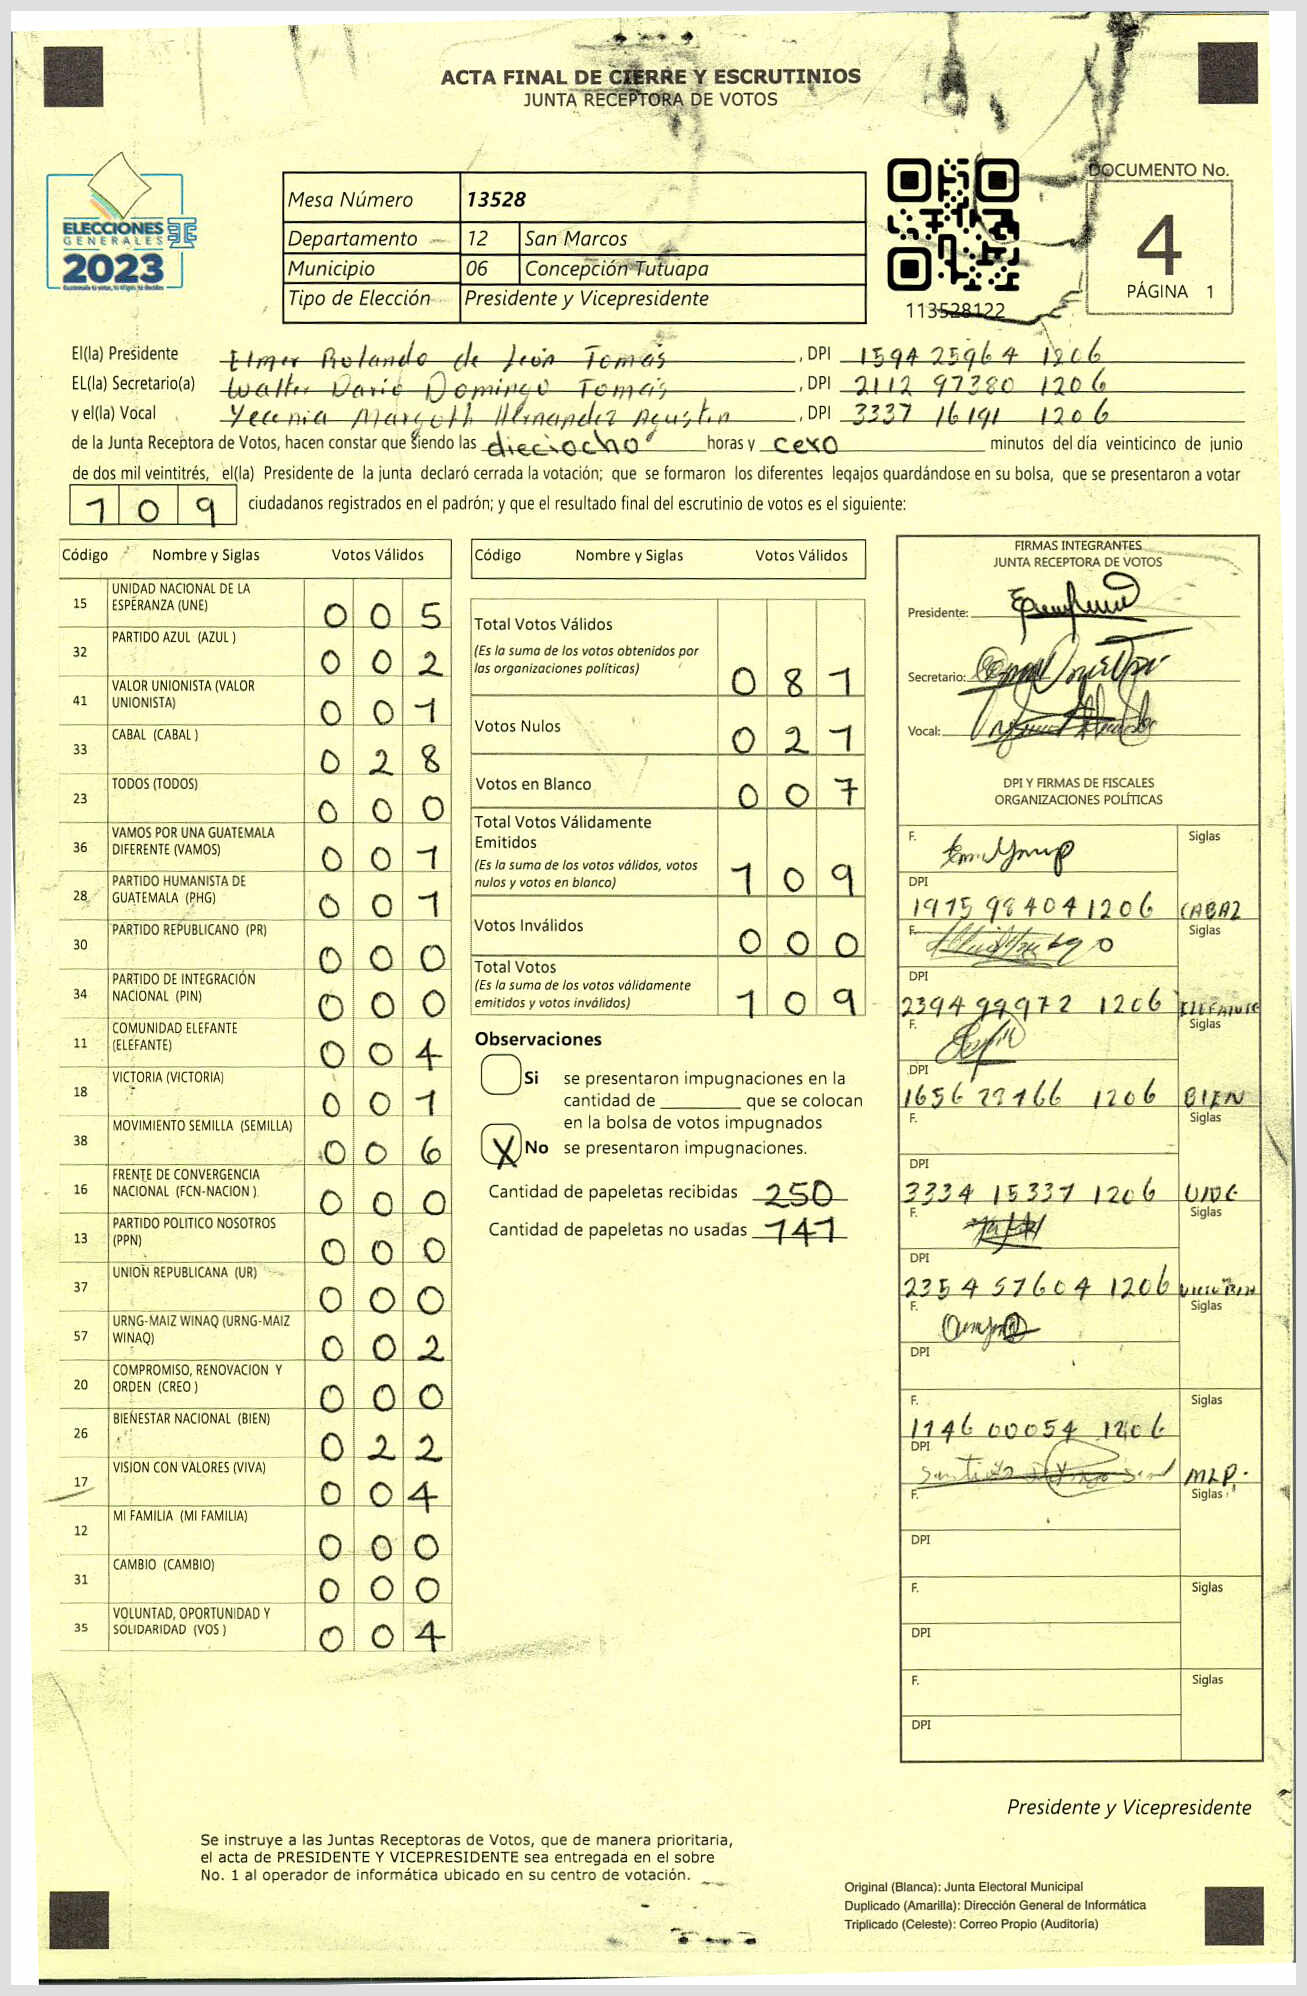 ACTA FINAL DE CIERRE Y ESCRUTINIOS
JUNTA RECEPTORA DE VOTOS
ELECCIONES
GENERALES
2023
Mesa Número 13528
Departamento 12 San Marcos
Municipio 06 Concepción Tutuapa
Tipo de Elección Presidente y Vicepresidente
113528122
DOCUMENTO No.
4
PÁGINA 1
El(la) Presidente Elmer Rolando de León Tomás , DPI 1594 25964 1206
EL(la) Secretario(a) Walter Dario Domingo Tomás , DPI 2112 97380 1206
y el(la) Vocal Yecenia Margoth Hernandez Agustin , DPI 3337 16191 1206
de la Junta Receptora de Votos, hacen constar que siendo las dieciocho horas y cero minutos del día veinticinco de junio
de dos mil veintitrés, el(la) Presidente de la junta declaró cerrada la votación; que se formaron los diferentes legajos guardándose en su bolsa, que se presentaron a votar
109 ciudadanos registrados en el padrón; y que el resultado final del escrutinio de votos es el siguiente:
Código Nombre y Siglas Votos Válidos
15 UNIDAD NACIONAL DE LA ESPERANZA (UNE) 0 0 5
32 PARTIDO AZUL (AZUL ) 0 0 2
41 VALOR UNIONISTA (VALOR UNIONISTA) 0 0 1
33 CABAL (CABAL ) 0 2 8
23 TODOS (TODOS) 0 0 0
36 VAMOS POR UNA GUATEMALA DIFERENTE (VAMOS) 0 0 1
28 PARTIDO HUMANISTA DE GUATEMALA (PHG) 0 0 1
30 PARTIDO REPUBLICANO (PR) 0 0 0
34 PARTIDO DE INTEGRACIÓN NACIONAL (PIN) 0 0 0
11 COMUNIDAD ELEFANTE (ELEFANTE) 0 0 4
18 VICTORIA (VICTORIA) 0 0 1
38 MOVIMIENTO SEMILLA (SEMILLA) 0 0 6
16 FRENTE DE CONVERGENCIA NACIONAL (FCN-NACION ) 0 0 0
13 PARTIDO POLITICO NOSOTROS (PPN) 0 0 0
37 UNION REPUBLICANA (UR) 0 0 0
57 URNG-MAIZ WINAQ (URNG-MAIZ WINAQ) 0 0 2
20 COMPROMISO, RENOVACION Y ORDEN (CREO ) 0 0 0
26 BIENESTAR NACIONAL (BIEN) 0 2 2
17 VISION CON VALORES (VIVA) 0 0 4
12 MI FAMILIA (MI FAMILIA) 0 0 0
31 CAMBIO (CAMBIO) 0 0 0
35 VOLUNTAD, OPORTUNIDAD Y SOLIDARIDAD (VOS ) 0 0 4
Código Nombre y Siglas Votos Válidos
Total Votos Válidos
(Es la suma de los votos obtenidos por
las organizaciones políticas) 0 8 1
Votos Nulos 0 2 1
Votos en Blanco 0 0 7
Total Votos Válidamente
Emitidos
(Es la suma de los votos válidos, votos
nulos y votos en blanco) 1 0 9
Votos Inválidos 0 0 0
Total Votos
(Es la suma de los votos válidamente
emitidos y votos inválidos) 1 0 9
Observaciones
Si se presentaron impugnaciones en la
cantidad de ________ que se colocan
en la bolsa de votos impugnados
X No se presentaron impugnaciones.
Cantidad de papeletas recibidas 250
Cantidad de papeletas no usadas 141
FIRMAS INTEGRANTES
JUNTA RECEPTORA DE VOTOS
Presidente:
Secretario:
Vocal:
DPI Y FIRMAS DE FISCALES
ORGANIZACIONES POLÍTICAS
F. Siglas
DPI
1975 98404 1206 CABAL
F. Siglas
DPI
2394 99972 1206 ELEFANTE
F. Siglas
DPI
1206 BIEN
F. Siglas
DPI
3334 15337 1206
F. Siglas
DPI
2354 57604 1206
F. Siglas
DPI
F. Siglas
1746 00054 1206
DPI
MLP.
F. Siglas
DPI
F. Siglas
DPI
F. Siglas
DPI
Presidente y Vicepresidente
Se instruye a las Juntas Receptoras de Votos, que de manera prioritaria,
el acta de PRESIDENTE Y VICEPRESIDENTE sea entregada en el sobre
No. 1 al operador de informática ubicado en su centro de votación.
Original (Blanca): Junta Electoral Municipal
Duplicado (Amarilla): Dirección General de Informática
Triplicado (Celeste): Correo Propio (Auditoría)